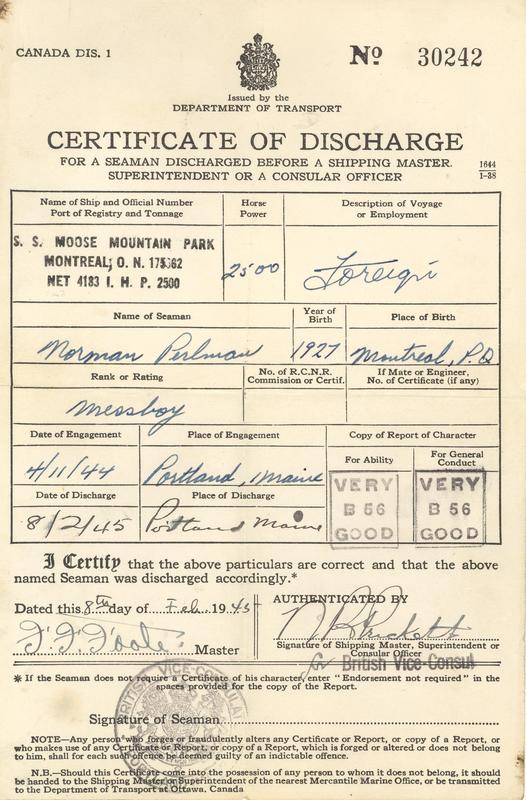 CANADA DIS. 1
No 30242
Issued by the
DEPARTMENT OF TRANSPORT
CERTIFICATE OF DISCHARGE
FOR A SEAMAN DISCHARGED BEFORE A SHIPPING MASTER.
SUPERINTENDENT OR A CONSULAR OFFICER
1644
1-38
Name of Ship and Official Number
Port of Registry and Tonnage
Horse
Power
Description of Voyage
or Employment
S. S. MOOSE MOUNTAIN PARK
MONTREAL; O. N.
NET 4183 I. H. P. 2500
2500
Foreign
Name of Seaman
Year of
Birth
Place of Birth
Norman Perlman
1927
Montreal, P.Q.
Rank or Rating
No. of R.C.N.R.
Commission or Certif.
If Mate or Engineer,
No. of Certificate (if any)
Messboy
Date of Engagement
Place of Engagement
Copy of Report of Character
For Ability
For General
Conduct
4/11/44
Portland, Maine
VERY
B 56
GOOD
VERY
B 56
GOOD
Date of Discharge
Place of Discharge
8/2/45
Portland Maine
I Certify that the above particulars are correct and that the above
named Seaman was discharged accordingly.*
Dated this 8th day of Feb. 1945
Master
AUTHENTICATED BY
Signature of Shipping Master, Superintendent or
Consular Officer
for British Vice-Consul
* If the Seaman does not require a Certificate of his character, enter "Endorsement not required" in the
spaces provided for the copy of the Report.
BRITISH VICE-CONSULATE
Signature of Seaman
NOTE—Any person who forges or fraudulently alters any Certificate or Report, or copy of a Report, or
who makes use of any Certificate or Report, or copy of a Report, which is forged or altered or does not belong
to him, shall for each such offence be deemed guilty of an indictable offence.
N.B.—Should this Certificate come into the possession of any person to whom it does not belong, it should
be handed to the Shipping Master or Superintendent of the nearest Mercantile Marine Office, or be transmitted
to the Department of Transport at Ottawa, Canada